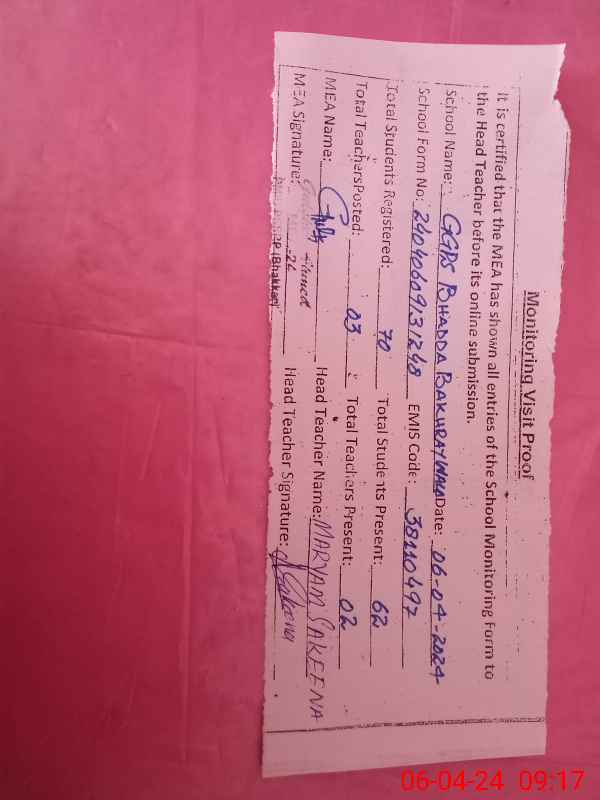 Monitoring Visit Proof
It is certified that the MEA has shown all entries of the School Monitoring Form to
the Head Teacher before its online submission.
School Name: GGPS BHADDA BAKHRAYWALA Date: 06-04-2024
School Form No: 24040609131248 EMIS Code: 38110497
Total Students Registered: 70 Total Students Present: 62
Total Teachers Posted: 03 Total Teachers Present: 02
MEA Name: Head Teacher Name: MARYAM SAKEENA
MEA Signature: Head Teacher Signature: Sakeena
(Bhakkar)
06-04-24 09:17